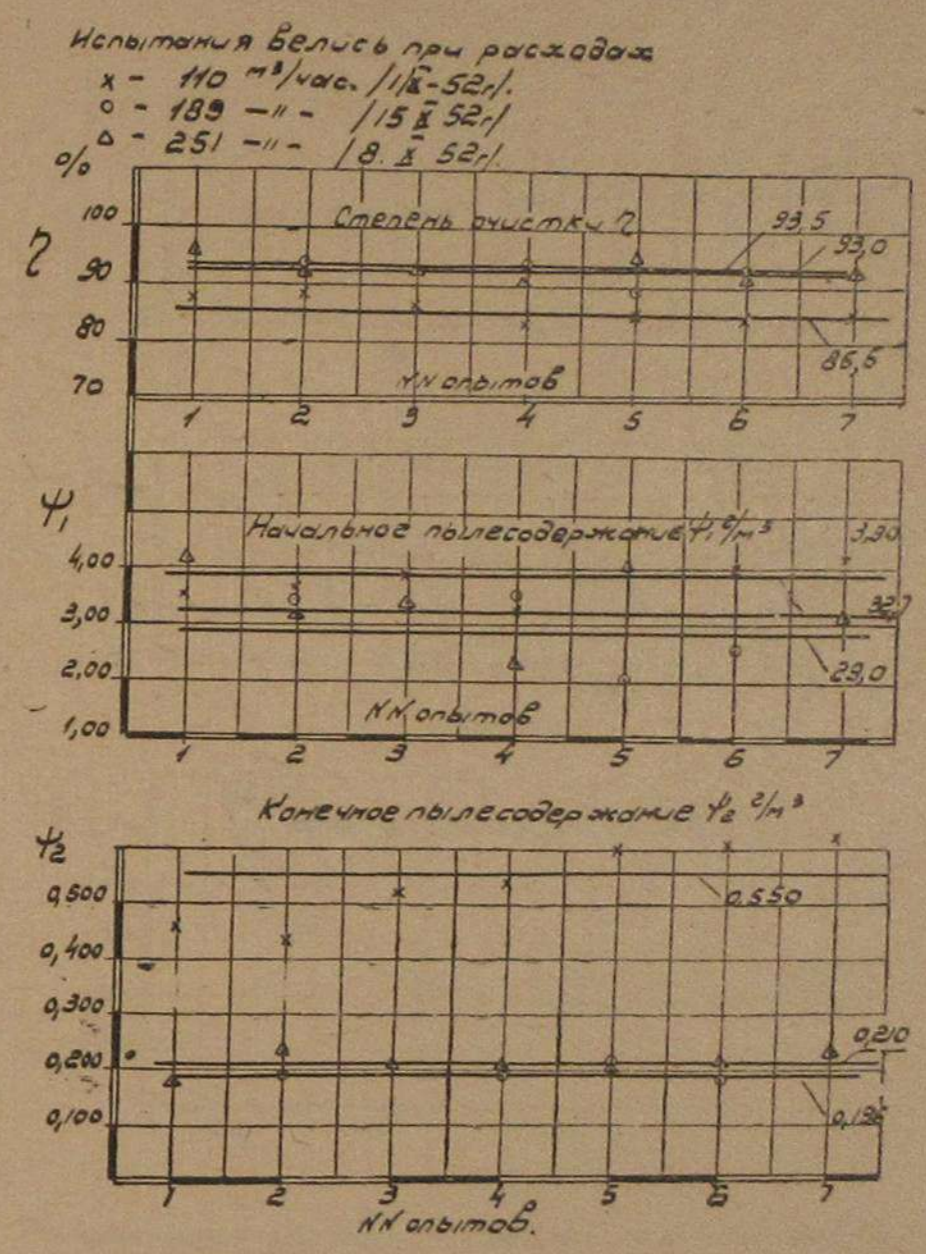 Испытания велись при расходах
x - 110 м³/час. /1/X-52г/.
o - 189 -"- /15 X 52г/
Δ - 251 -"- /8. X 52г/.
%
η
100
90
80
70
Степень очистки η
93,5
93,0
86,5
NN опытов
1 2 3 4 5 6 7
Ψ₁
4,00
3,00
2,00
1,00
Начальное пылесодержание Ψ₁ г/м³
3,90
32,7
29,0
NN опытов
1 2 3 4 5 6 7
Конечное пылесодержание Ψ₂ г/м³
Ψ₂
0,500
0,400
0,300
0,200
0,100
0,550
0,210
1 2 3 4 5 6 7
NN опытов.